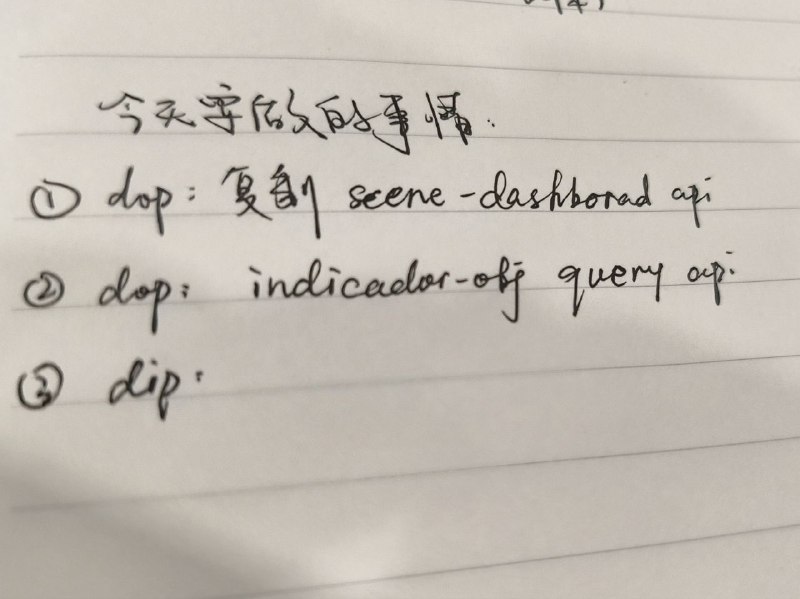 今天要做的事情.
① dop: 复制 scene-dashborad api
② dop: indicador-obj query api.
③ dip: